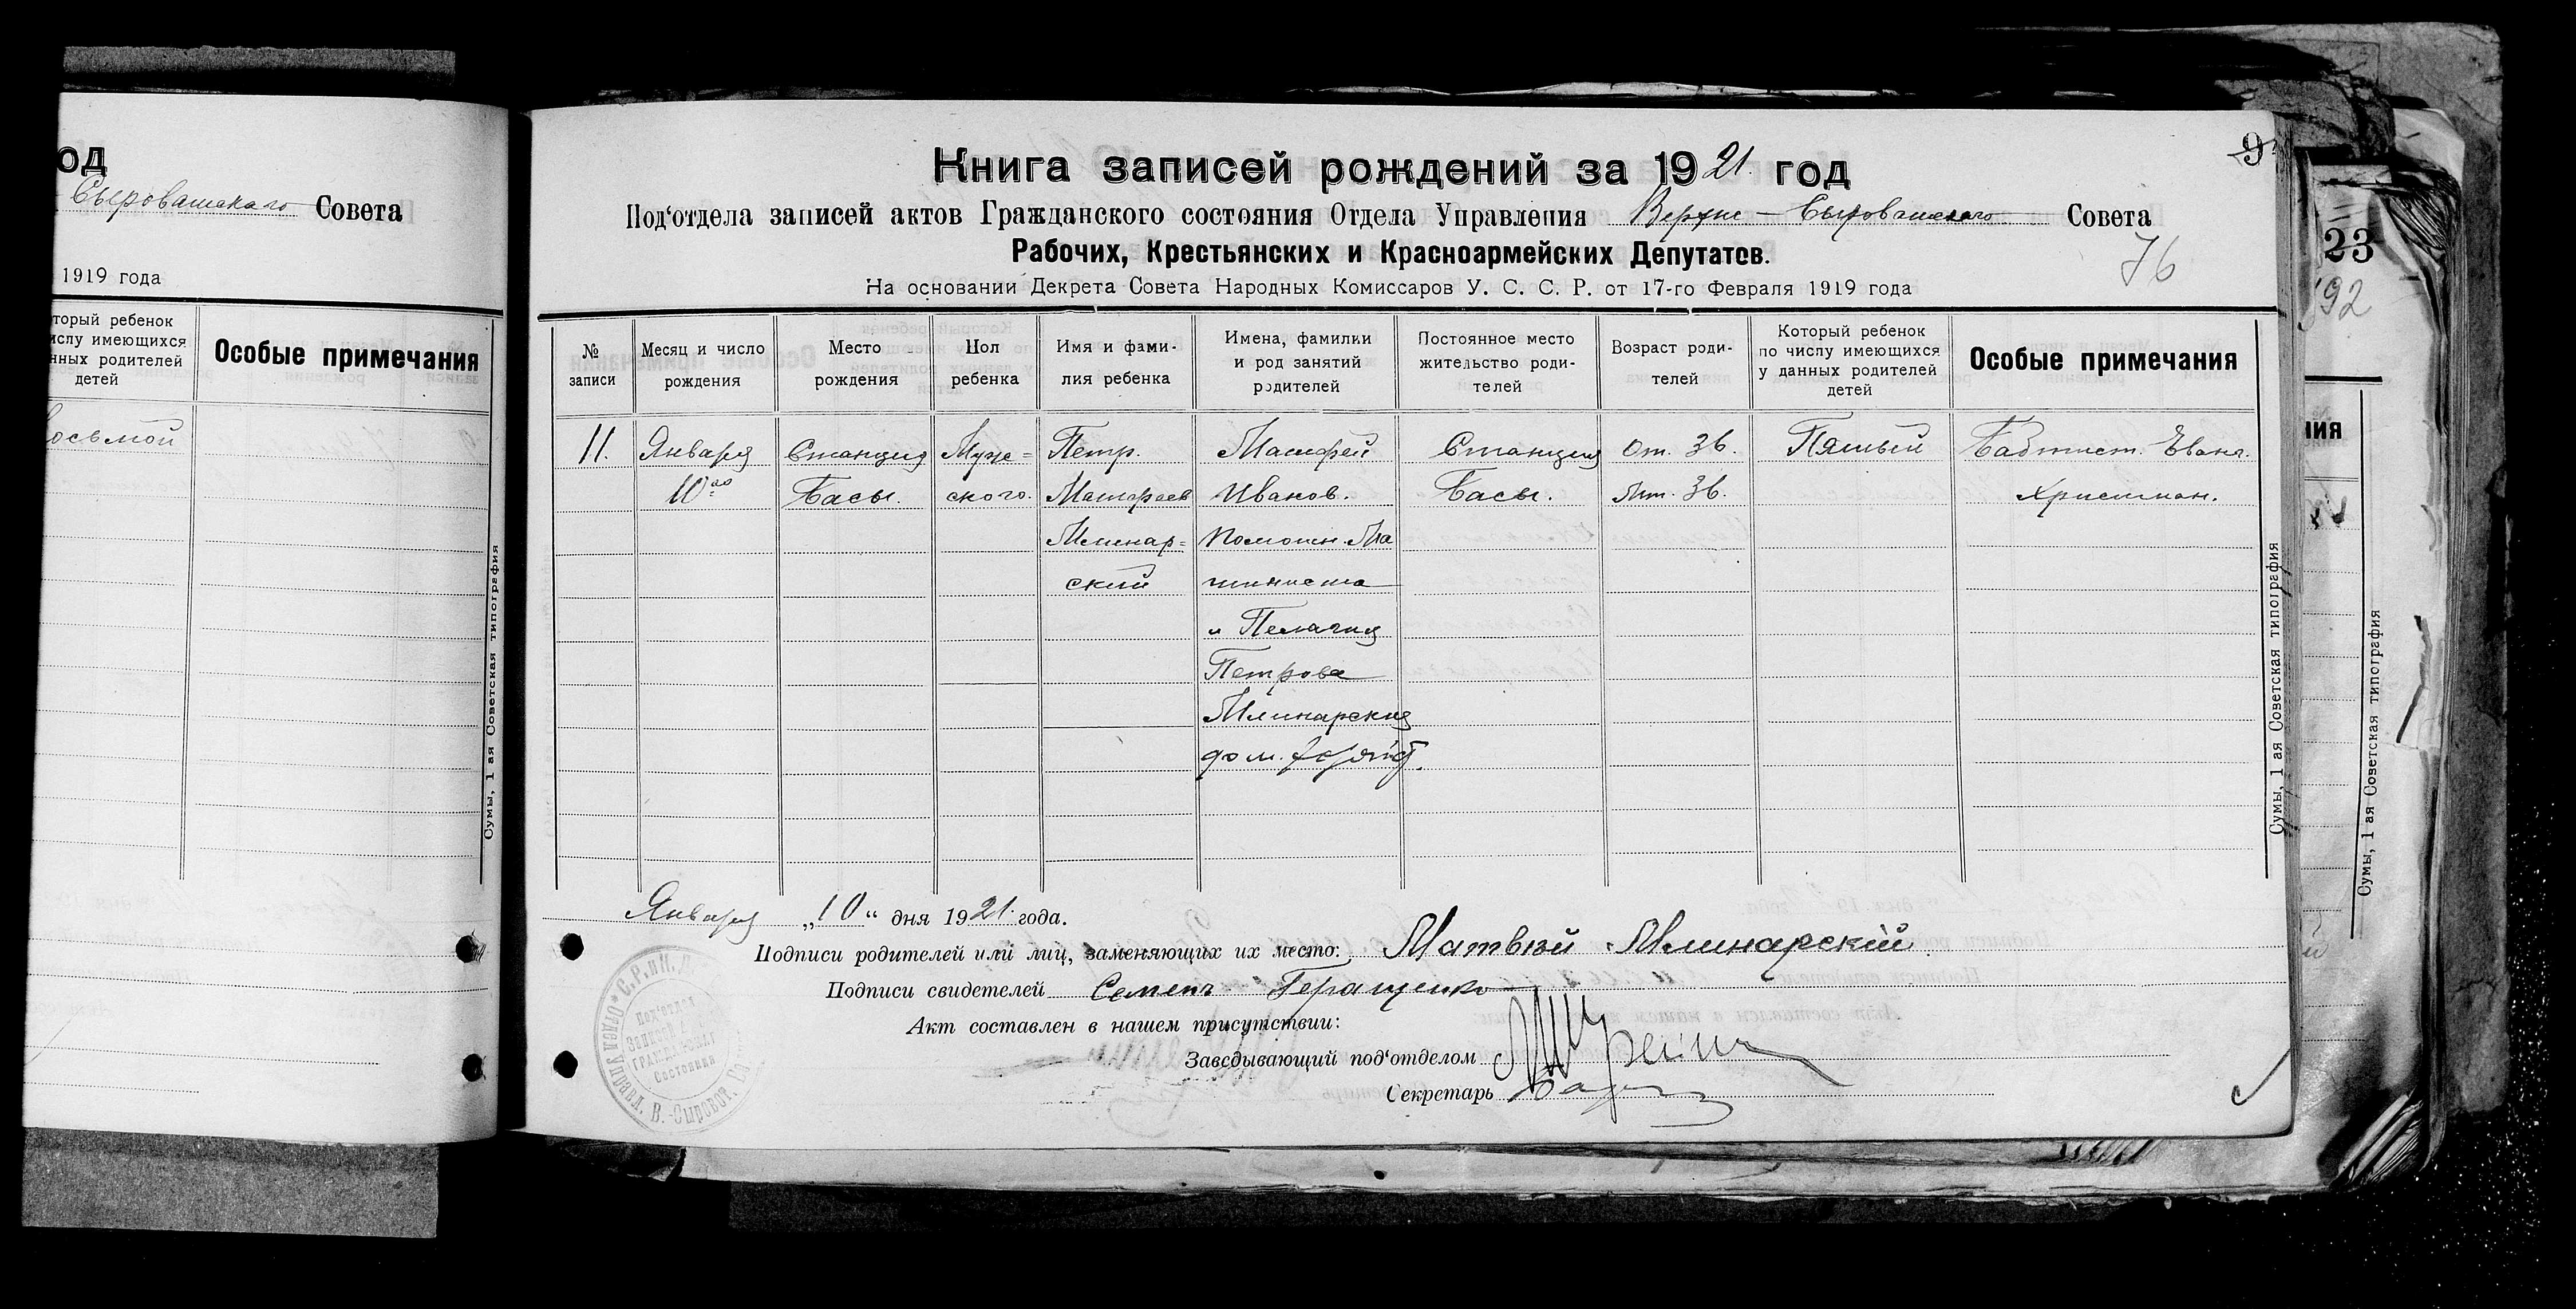 од
Сыроватского Совета
1919 года
торый ребенок
ислу имеющихся
нных родителей
детей
Особые примечания
осьмой
Сумы, 1 ая Советская типография
9
Книга записей рождений за 1921 год
Под‘отдела записей актов Гражданского состояния Отдела Управления Верхне-Сыроватского Совета
Рабочих, Крестьянских и Красноармейских Депутатов.
76
На основании Декрета Совета Народных Комиссаров У. С. С. Р. от 17-го Февраля 1919 года
№ записи
Месяц и число рождения
Место рождения
Пол ребенка
Имя и фами-
лия ребенка
Имена, фамилии
и род занятий
родителей
Постоянное место
жительство роди-
телей
Возраст роди-
телей
Который ребенок
по числу имеющихся
у данных родителей
детей
Особые примечания
11. Января Станция Муже= Петр. Матфей Станция От. 36. Пятый Баптист. Еванг.
10го Басы. ского. Матфеев Иванов. Басы. Мт. 36. Христиан.
Млинар= Помощн. Ма
ский шиниста
и Пелагия
Петрова
Млинарския
дом.
Января „10“ дня 1921 года.
Подписи родителей или лиц, заменяющих их место: Матвѣй Млинарскій
Подписи свидетелей Семенъ Геращенко
Акт составлен в нашем присутствии:
Заведывающий под‘отделом
Секретарь
Отдел Управл. В.-Сыроват. С.Р.и К.Д.
Под‘отдел
Записей Актов
Гражданского
Состояния
Сумы, 1 ая Советская типография
23
192
ния
Сумы, 1 ая Советская типография